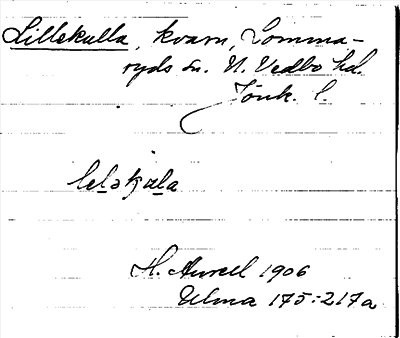 Lillekulla, kvarn, Somma-
ryds sn. N. Vedbo hd.
Jönk. l.
leləkula
H. Aurell 1906
Ulma 175:217a